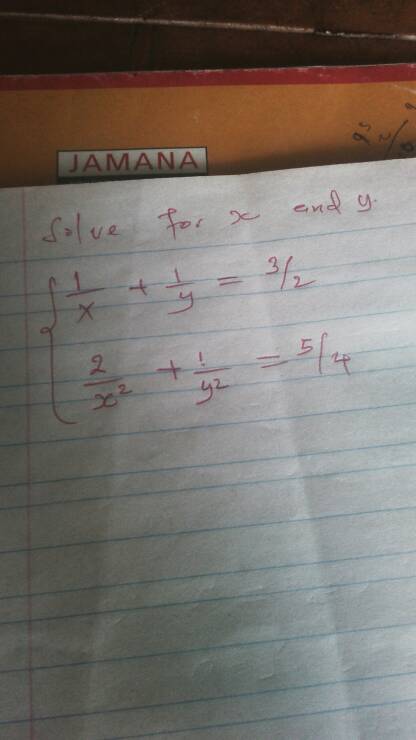 JAMANA
Solve for x and y.
1/x + 1/y = 3/2
2/x² + 1/y² = 5/4